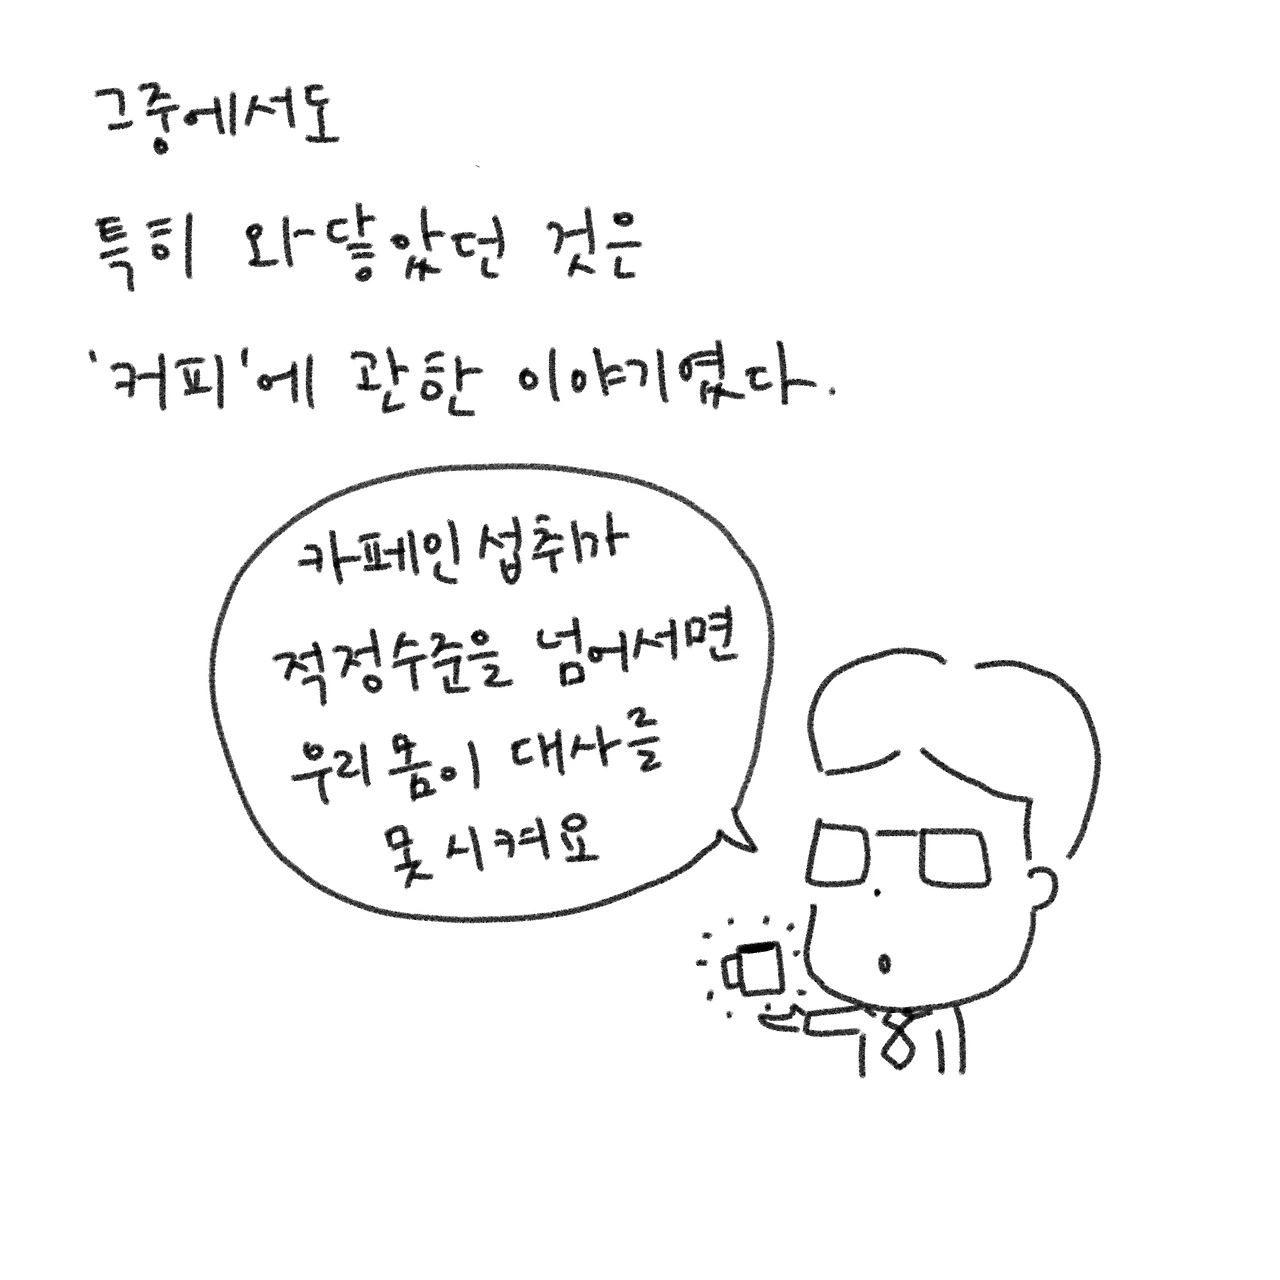 그중에서도
특히 와닿았던 것은
'커피'에 관한 이야기였다.
카페인 섭취가
적정수준을 넘어서면
우리 몸이 대사를
못 시켜요